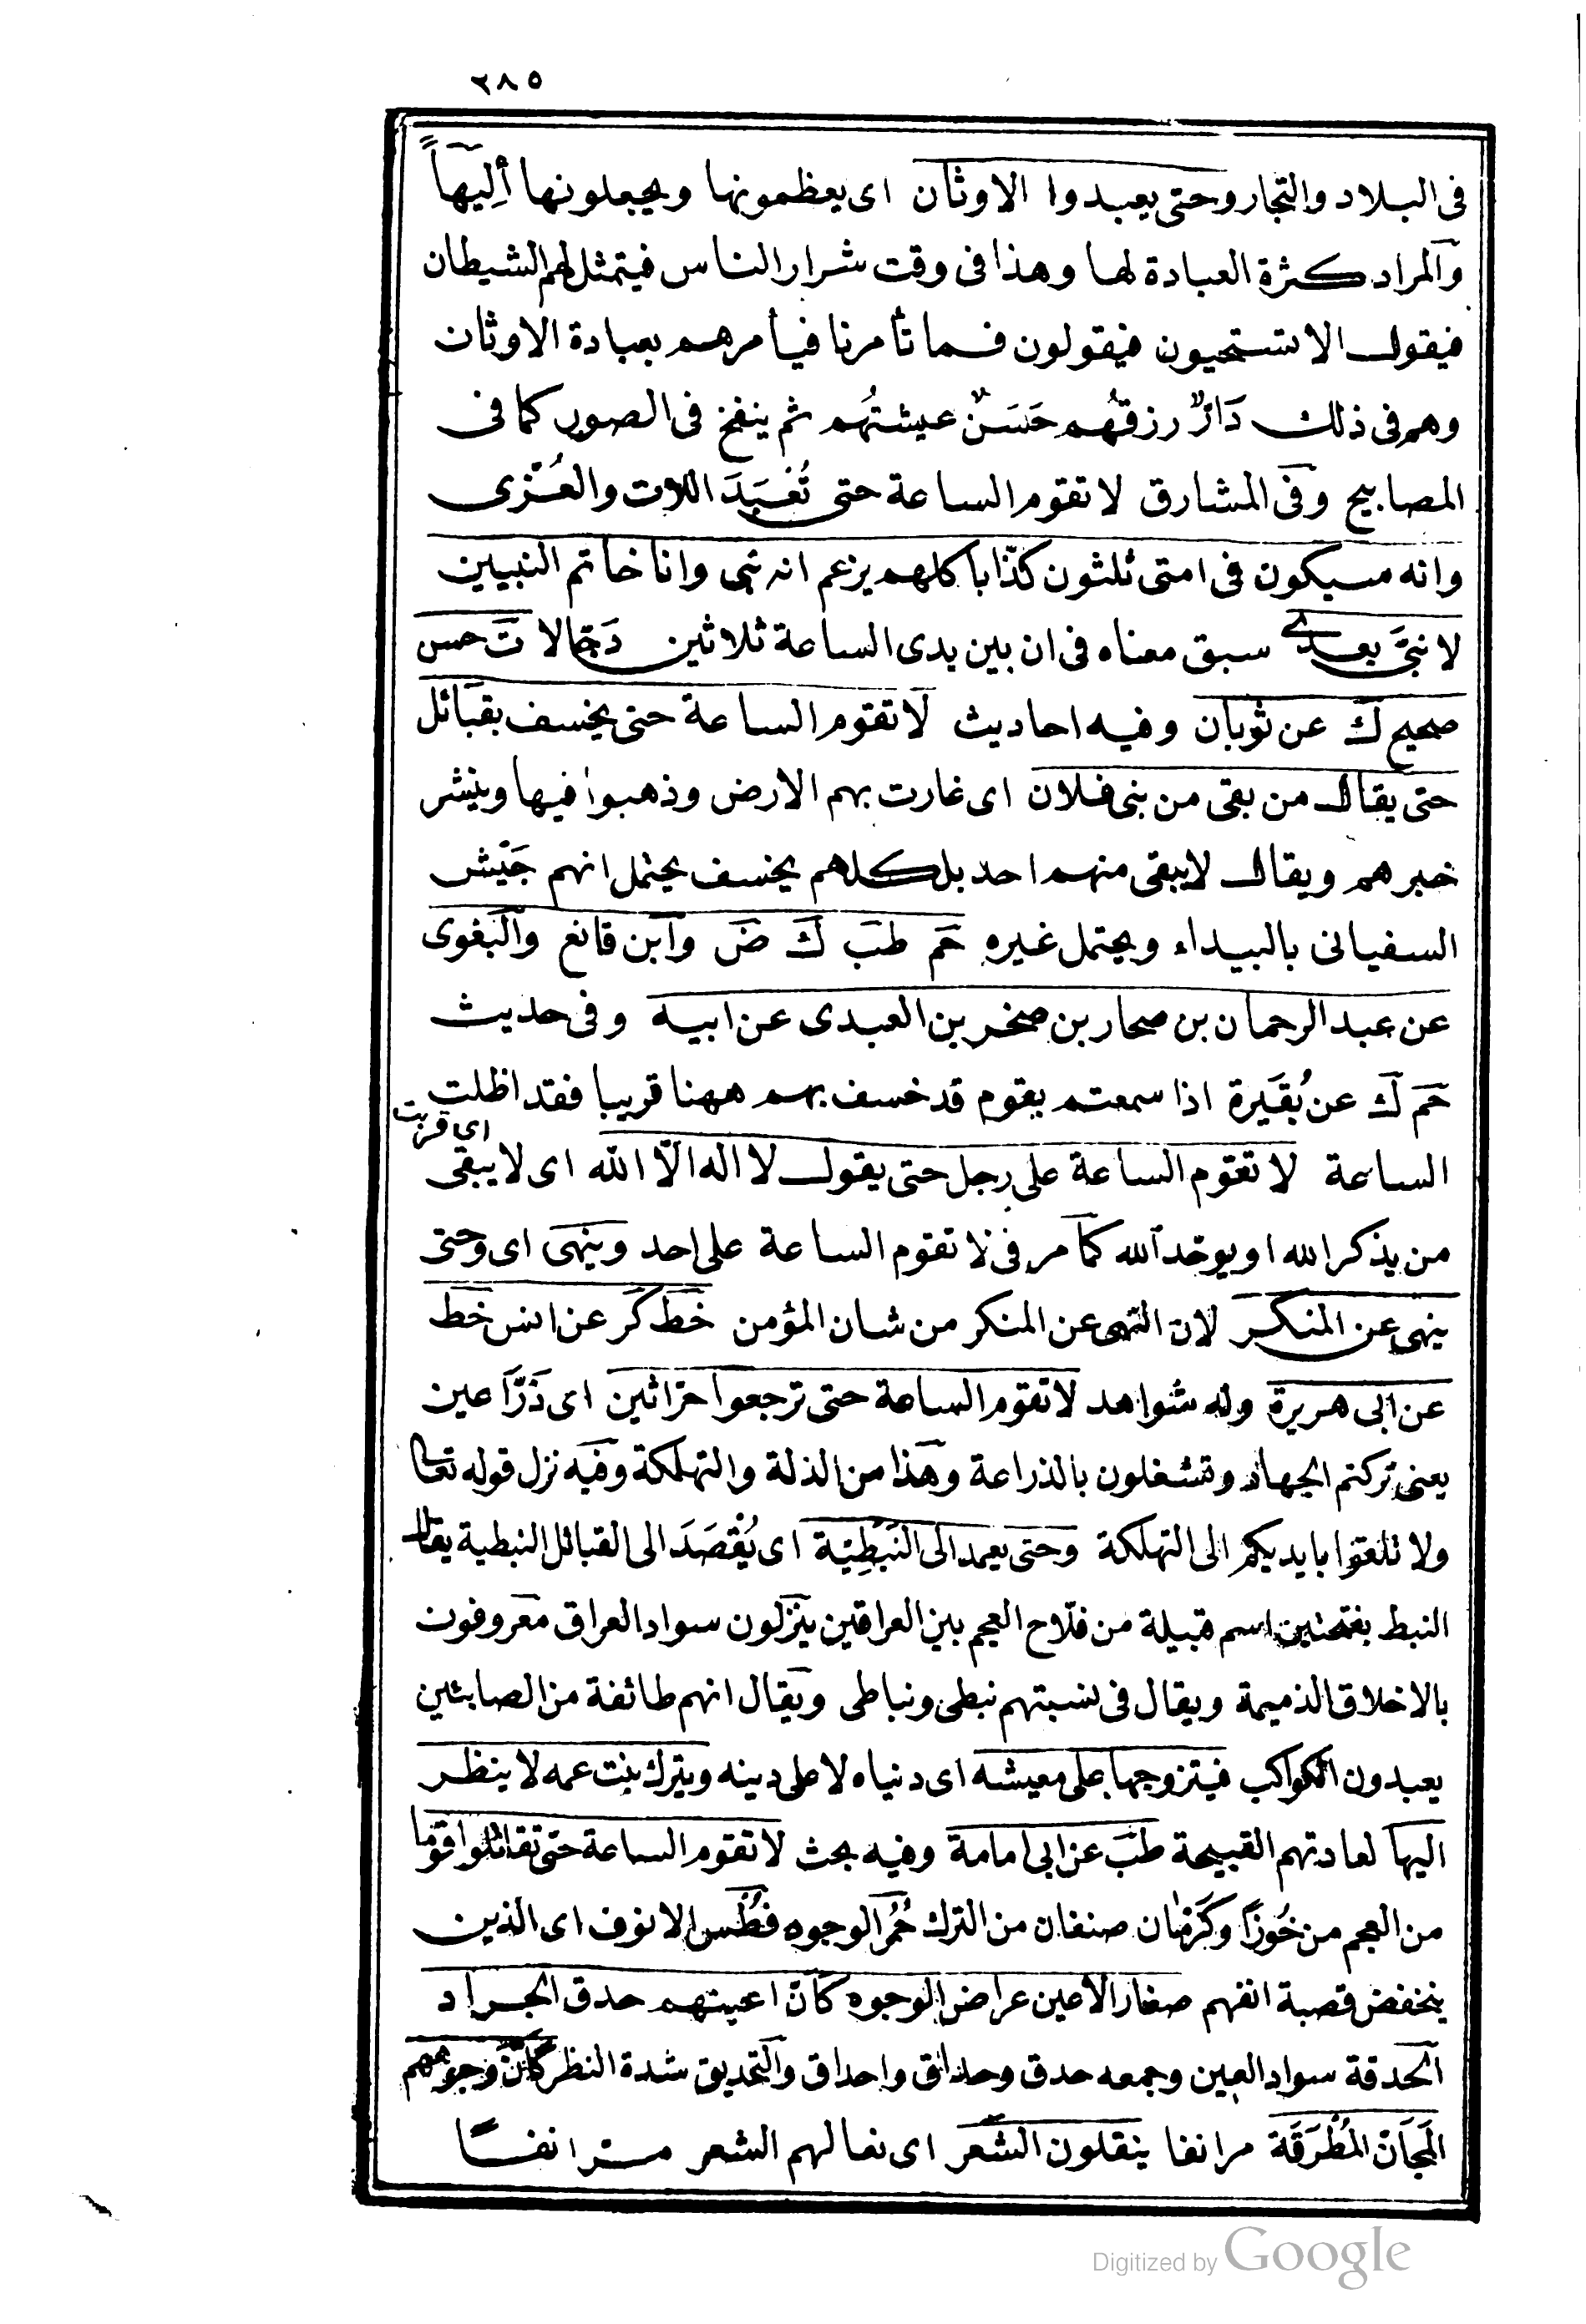 ٢٨٥
فى البلاد والتجار وحتى يعبدوا الاوثان اى يعظمونها ويجعلونها أَلِيهاً
والمراد كثرة العبادة لها وهذا فى وقت شرار الناس فيتمثل لهم الشيطان
فيقول الا تستحيون فيقولون فما تأمرنا فيأمرهم بعبادة الاوثان
وهم فى ذلك دَارٌ رزقهُم حَسَنٌ عيشتهُم ثم ينفخ فى الصور كما فى
المصابيح وفى المشارق لا تقوم الساعة حتى تُعْبَدَ اللات والعُزّى
وانه سيكون فى امتى ثلثون كذّابا كلهم يزعم انه نبى وانا خاتم النبيين
لا نبىَّ بعدى سبق معناه فى ان بين يدى الساعة ثلاثين دَجّالا تَ حسن
صحيح كَ عن ثوبان وفيه احاديث لا تقوم الساعة حتى يخسف بقبائل
حتى يقال من بقى من بنى فلان اى غارت بهم الارض وذهبوا فيها وينشر
خبرهم ويقال لا يبقى منهم احد بل كلهم يخسف يحتمل انهم جَيْش
السفيانى بالبيداء ويحتمل غيره حَم طبَ كَ ضَ وابن قانع والبغوى
عن عبد الرحمان بن صحار بن صخر بن العبدى عن ابيه وفى حديث
حَم كَ عن بُقَيرة اذا سمعتم بقوم قد خسف بهم ههنا قريبا فقد اظلت
اى قربت
الساعة لا تقوم الساعة على رجل حتى يقول لا اله الّا الله اى لا يبقى
من يذكر الله او يوحّد الله كما مر فى لا تقوم الساعة على احد وينهى اى وحتى
ينهى عن المنكر لان النهى عن المنكر من شان المؤمن خَط كَر عن انس خَط
عن ابى هريرة وله شواهد لا تقوم الساعة حتى ترجعوا حرّاثين اى ذَرّاعين
يعنى تركتم الجهاد وتشغلون بالذراعة وهذا من الذلة والتهلكة وفيه نزل قوله تعالى
ولا تلقوا بايديكم الى التهلكة وحتى يعمد الى النَبَطِيّة اى يُقْصَدَ الى القبائل النبطية يقال
النبط بفتحتين اسم قبيلة من فلّاح العجم بين العراقين ينزلون سواد العراق معروفون
بالاخلاق الذميمة ويقال فى نسبتهم نبطى ونباطى ويقال انهم طائفة من الصابئين
يعبدون الكواكب فيتزوجها على معيشه اى دنياه لا على دينه ويترك بنت عمه لا ينظر
اليها لعادتهم القبيحة طبَ عن ابى امامة وفيه بحث لا تقوم الساعة حتى تقاتلوا قوما
من العجم من خُوزًا وكَرمان صنفان من الترك حُمْر الوجوه فُطْس الانوف اى الذين
ينخفض قصبة انفهم صغار الاعين عراض الوجوه كَانّ اعينهم حدق الجراد
الحدقة سواد العين وجمعه حدق وحداق واحداق والتحديق شدة النظر كانّ وجوههم
المَجَانّ المُطْرَقَة مر انفا ينقلون الشَعر اى نعالهم الشعر مـر انفـا